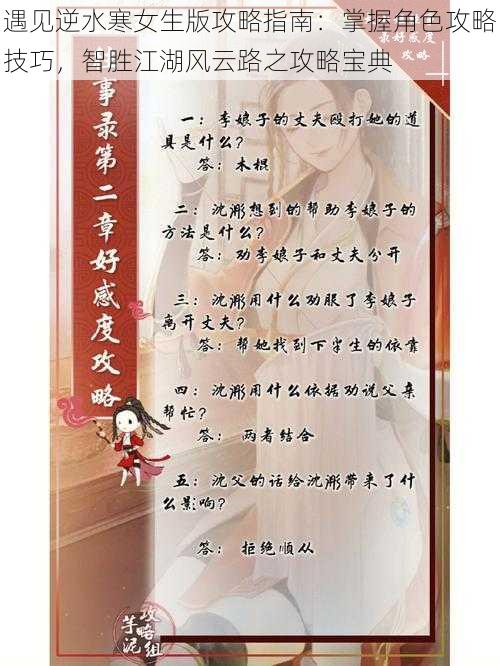 遇见逆水寒女生版攻略指南：掌握角色攻略
技巧，智胜江湖风云路之攻略宝典
录好感度
攻略
事录第二章好感度攻略
一：李娘子的丈夫殴打她的道
具是什么？
答：木棍
二：沈浵想到的帮助李娘子的
方法是什么？
答：劝李娘子和丈夫分开
三：沈浵用什么劝服了李娘子
离开丈夫？
答：帮她找到下半生的依靠
四：沈浵用什么依据劝说父亲
帮忙？
答：两者结合
五：沈父的话给沈浵带来了什
么影响？
答：拒绝顺从
芋泥
攻略组